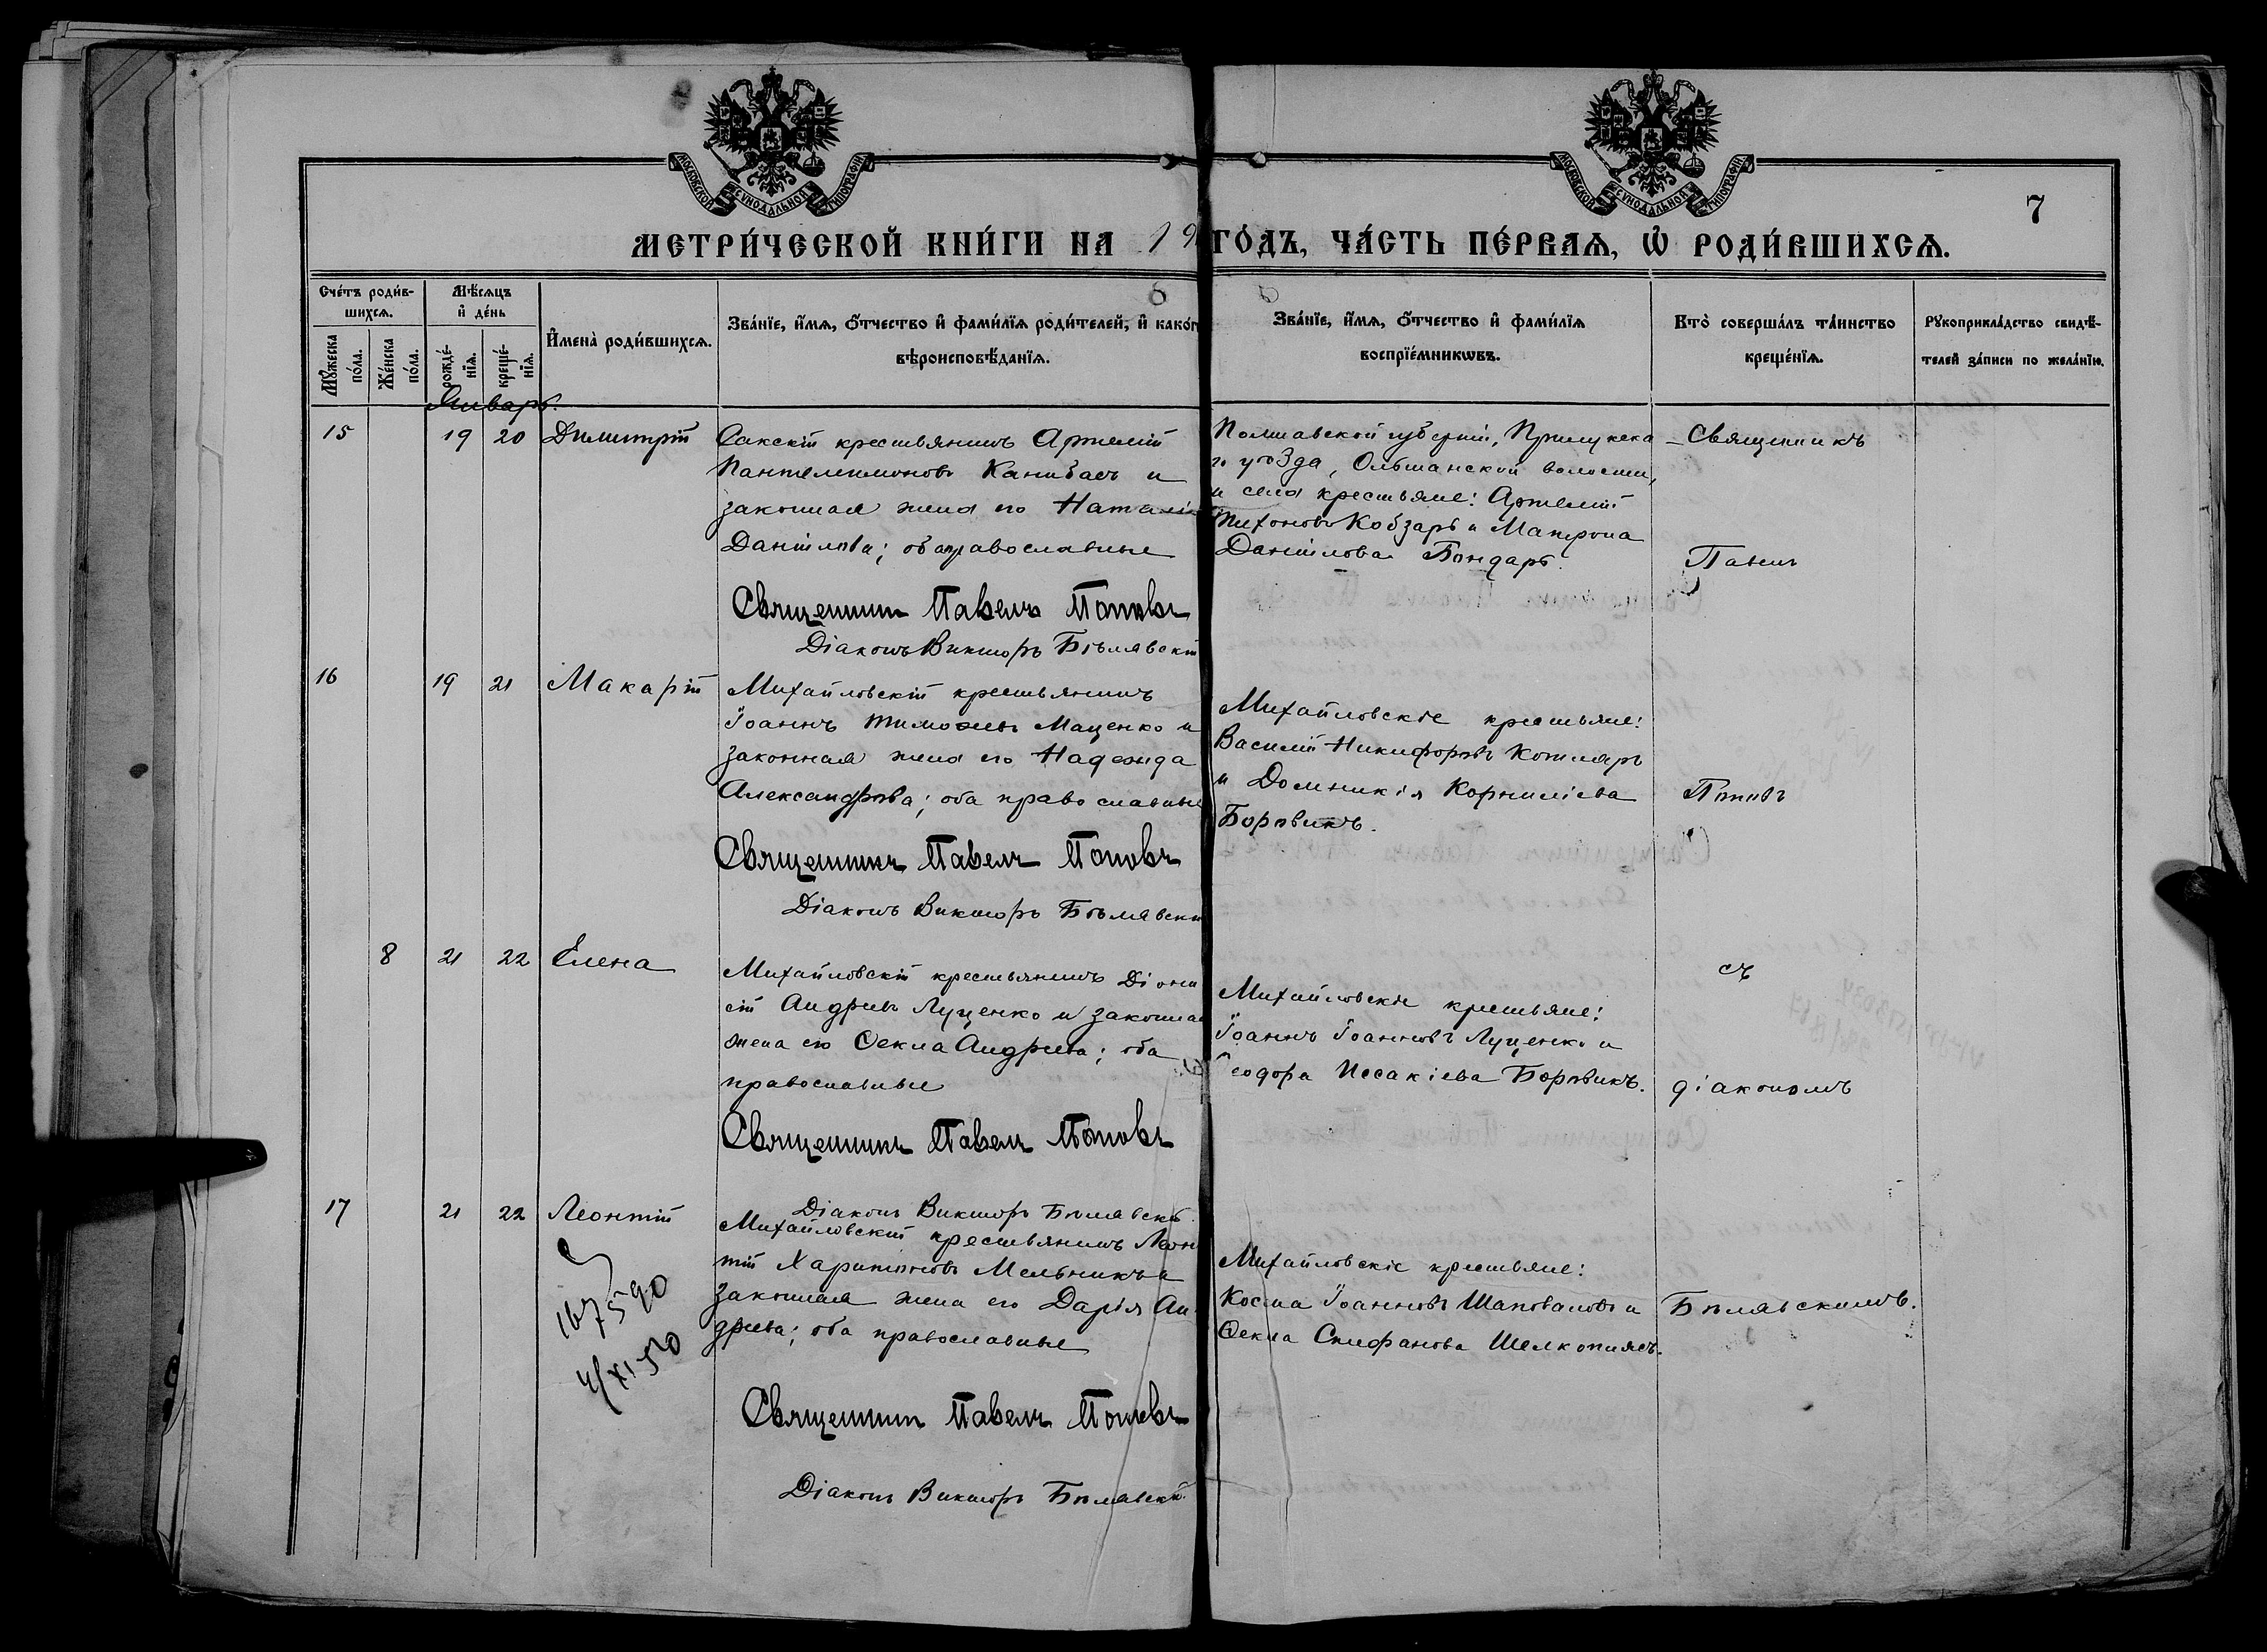 МОСКОВСКОЙ СѴНОДАЛЬНОЙ ТИПОГРАФІИ
МОСКОВСКОЙ СѴНОДАЛЬНОЙ ТИПОГРАФІИ
7
МЕТРИ́ЧЕСКОЙ КНИ́ГИ НА 19
ГО́ДЪ, ЧА́СТЬ ПЕ́РВАѦ, Ѡ҆ РОДИ́ВШИХСѦ.
Сче́тъ роди́в-
шихсѧ.
Мꙋ́жеска по́ла.
Же́нска по́ла.
Мѣ́сѧцъ
и҆ де́нь
рожде́-
нїѧ.
креще́-
нїѧ.
И҆мена̀ роди́вшихсѧ.
Зва́нїе, и҆́мѧ, ѻ҆́тчество и҆ фамѝлїѧ роди́телей, и҆ како́г
вѣроисповѣ́данїѧ.
Зва́нїе, и҆́мѧ, ѻ҆́тчество и҆ фами́лїѧ
воспрїе́мникѡвъ.
Кто̀ соверша́лъ та́инство
креще́нїѧ.
Рꙋкоприкла́дство свидѣ́-
телей за́писи по жела́нїю.
Январь.
15 19 20 Димитрій
Сакскій крестьянинъ Артемій
Пантелеимоновъ Канибасъ и
законная жена его Наталія
Даніилова; оба православные
Священникъ Павелъ Поповъ
Діаконъ Викторъ Бѣлявскій
Полтавской губерніи, Прилукска
го уѣзда, Ольшанской волости,
и села крестьяне: Артемій
Тихоновъ Кобзарь и Матрона
Даніилова Бондарь.
Священникъ
Павелъ
16 19 21 Макарій
Михайловскій крестьянинъ
Іоаннъ Тимоѳеевъ Маценко и
законная жена его Надежда
Александрова; оба православные
Священникъ Павелъ Поповъ
Діаконъ Викторъ Бѣлявскі
Михайловскіе крестьяне:
Василій Никифоровъ Котляръ
и Домникія Корниліева
Боровикъ.
Поповъ
8 21 22 Елена
Михайловскій крестьянинъ Діони
сій Андреевъ Луценко и законная
жена его Ѳекла Андреева; оба
православные
Священникъ Павелъ Поповъ
Діаконъ Викторъ Бѣлявскі
Михайловскіе крестьяне:
Іоаннъ Іоанновъ Луценко и
Ѳеодора Иссакіева Боровикъ.
съ
діакономъ
17 21 22 Леонтій
167590
4/XI-50
Михайловскій крестьянинъ Леон
тій Харитоновъ Мельникъ и
законная жена его Дарія Ан
дреева; оба православные
Священникъ Павелъ Поповъ
Діаконъ Викторъ Бѣлявскій
Михайловскіе крестьяне:
Косма Іоанновъ Шаповаловъ и
Ѳекла Стефанова Шелкоплясъ.
Бѣлявскимъ.